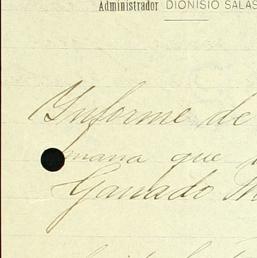 Administrador DIONISIO SALAS
Informe de
mana que
Ganado